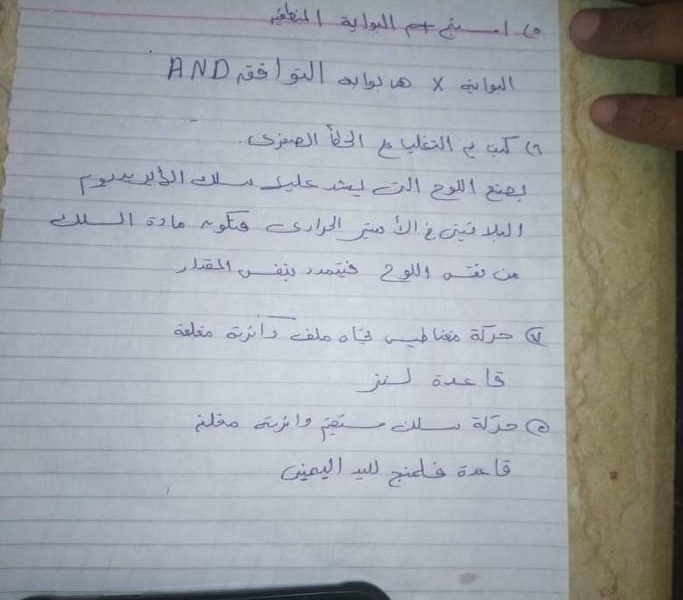 ٥) استنتج اسم البوابة المنطقية
البوابة X هي بوابة التوافق AND
٦) كيف يتم التغلب على الخطأ الصفري.
بصنع اللوح التى يشد عليك سلك الأيريديوم
البلاتينى فى الأميتر الحرارى فتكون مادة السلك
من نفس اللوح فيتمدد بنفس المقدار
٧) حركة مغناطيس تجاه ملف دائرته مغلقة
قاعدة لنز
حركة سلك مستقيم دائرته مغلقة
قاعدة فلمنج لليد اليمنى